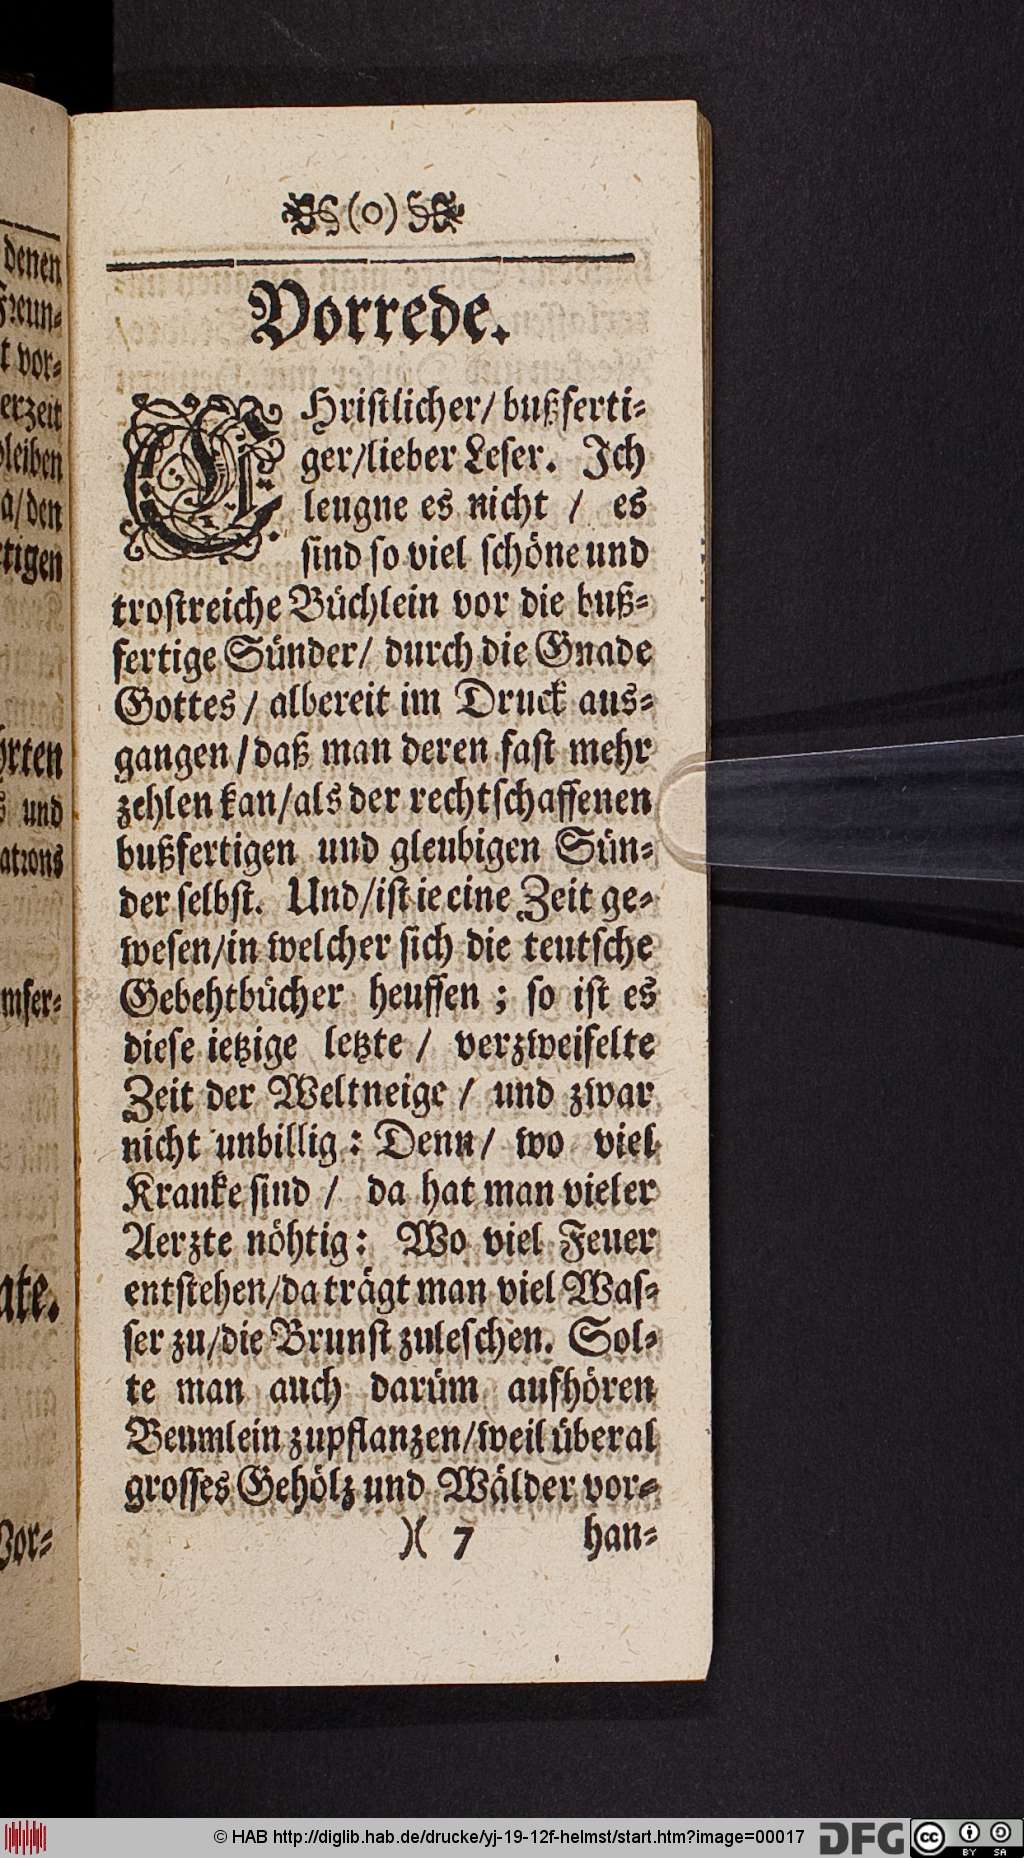 (o)
Vorrede.
CHristlicher/ bußferti-
ger/lieber Leser. Ich
leugne es nicht / es
sind so viel schöne und
trostreiche Büchlein vor die buß-
fertige Sünder/ durch die Gnade
Gottes / albereit im Druck aus-
gangen / daß man deren fast mehr
zehlen kan/als der rechtschaffenen
bußfertigen und gleubigen Sün-
der selbst. Und/ist ie eine Zeit ge-
wesen/in welcher sich die teutsche
Gebehtbücher heuffen ; so ist es
diese ietzige letzte / verzweifelte
Zeit der Weltneige / und zwar
nicht unbillig : Denn/ wo viel
Kranke sind / da hat man vieler
Aerzte nöhtig : Wo viel Feuer
entstehen/da trägt man viel Was-
ser zu/die Brunst zuleschen. Sol-
te man auch darüm aufhören
Beumlein zupflanzen/weil überal
grosses Gehölz und Wälder vor-
)( 7 han-
denen
Freun-
t vor-
erzeit
bleiben
a/den
rtigen
rten
s und
ations
mser-
ate.
Vor-
© HAB http://diglib.hab.de/drucke/yj-19-12f-helmst/start.htm?image=00017
DFG
cc BY SA